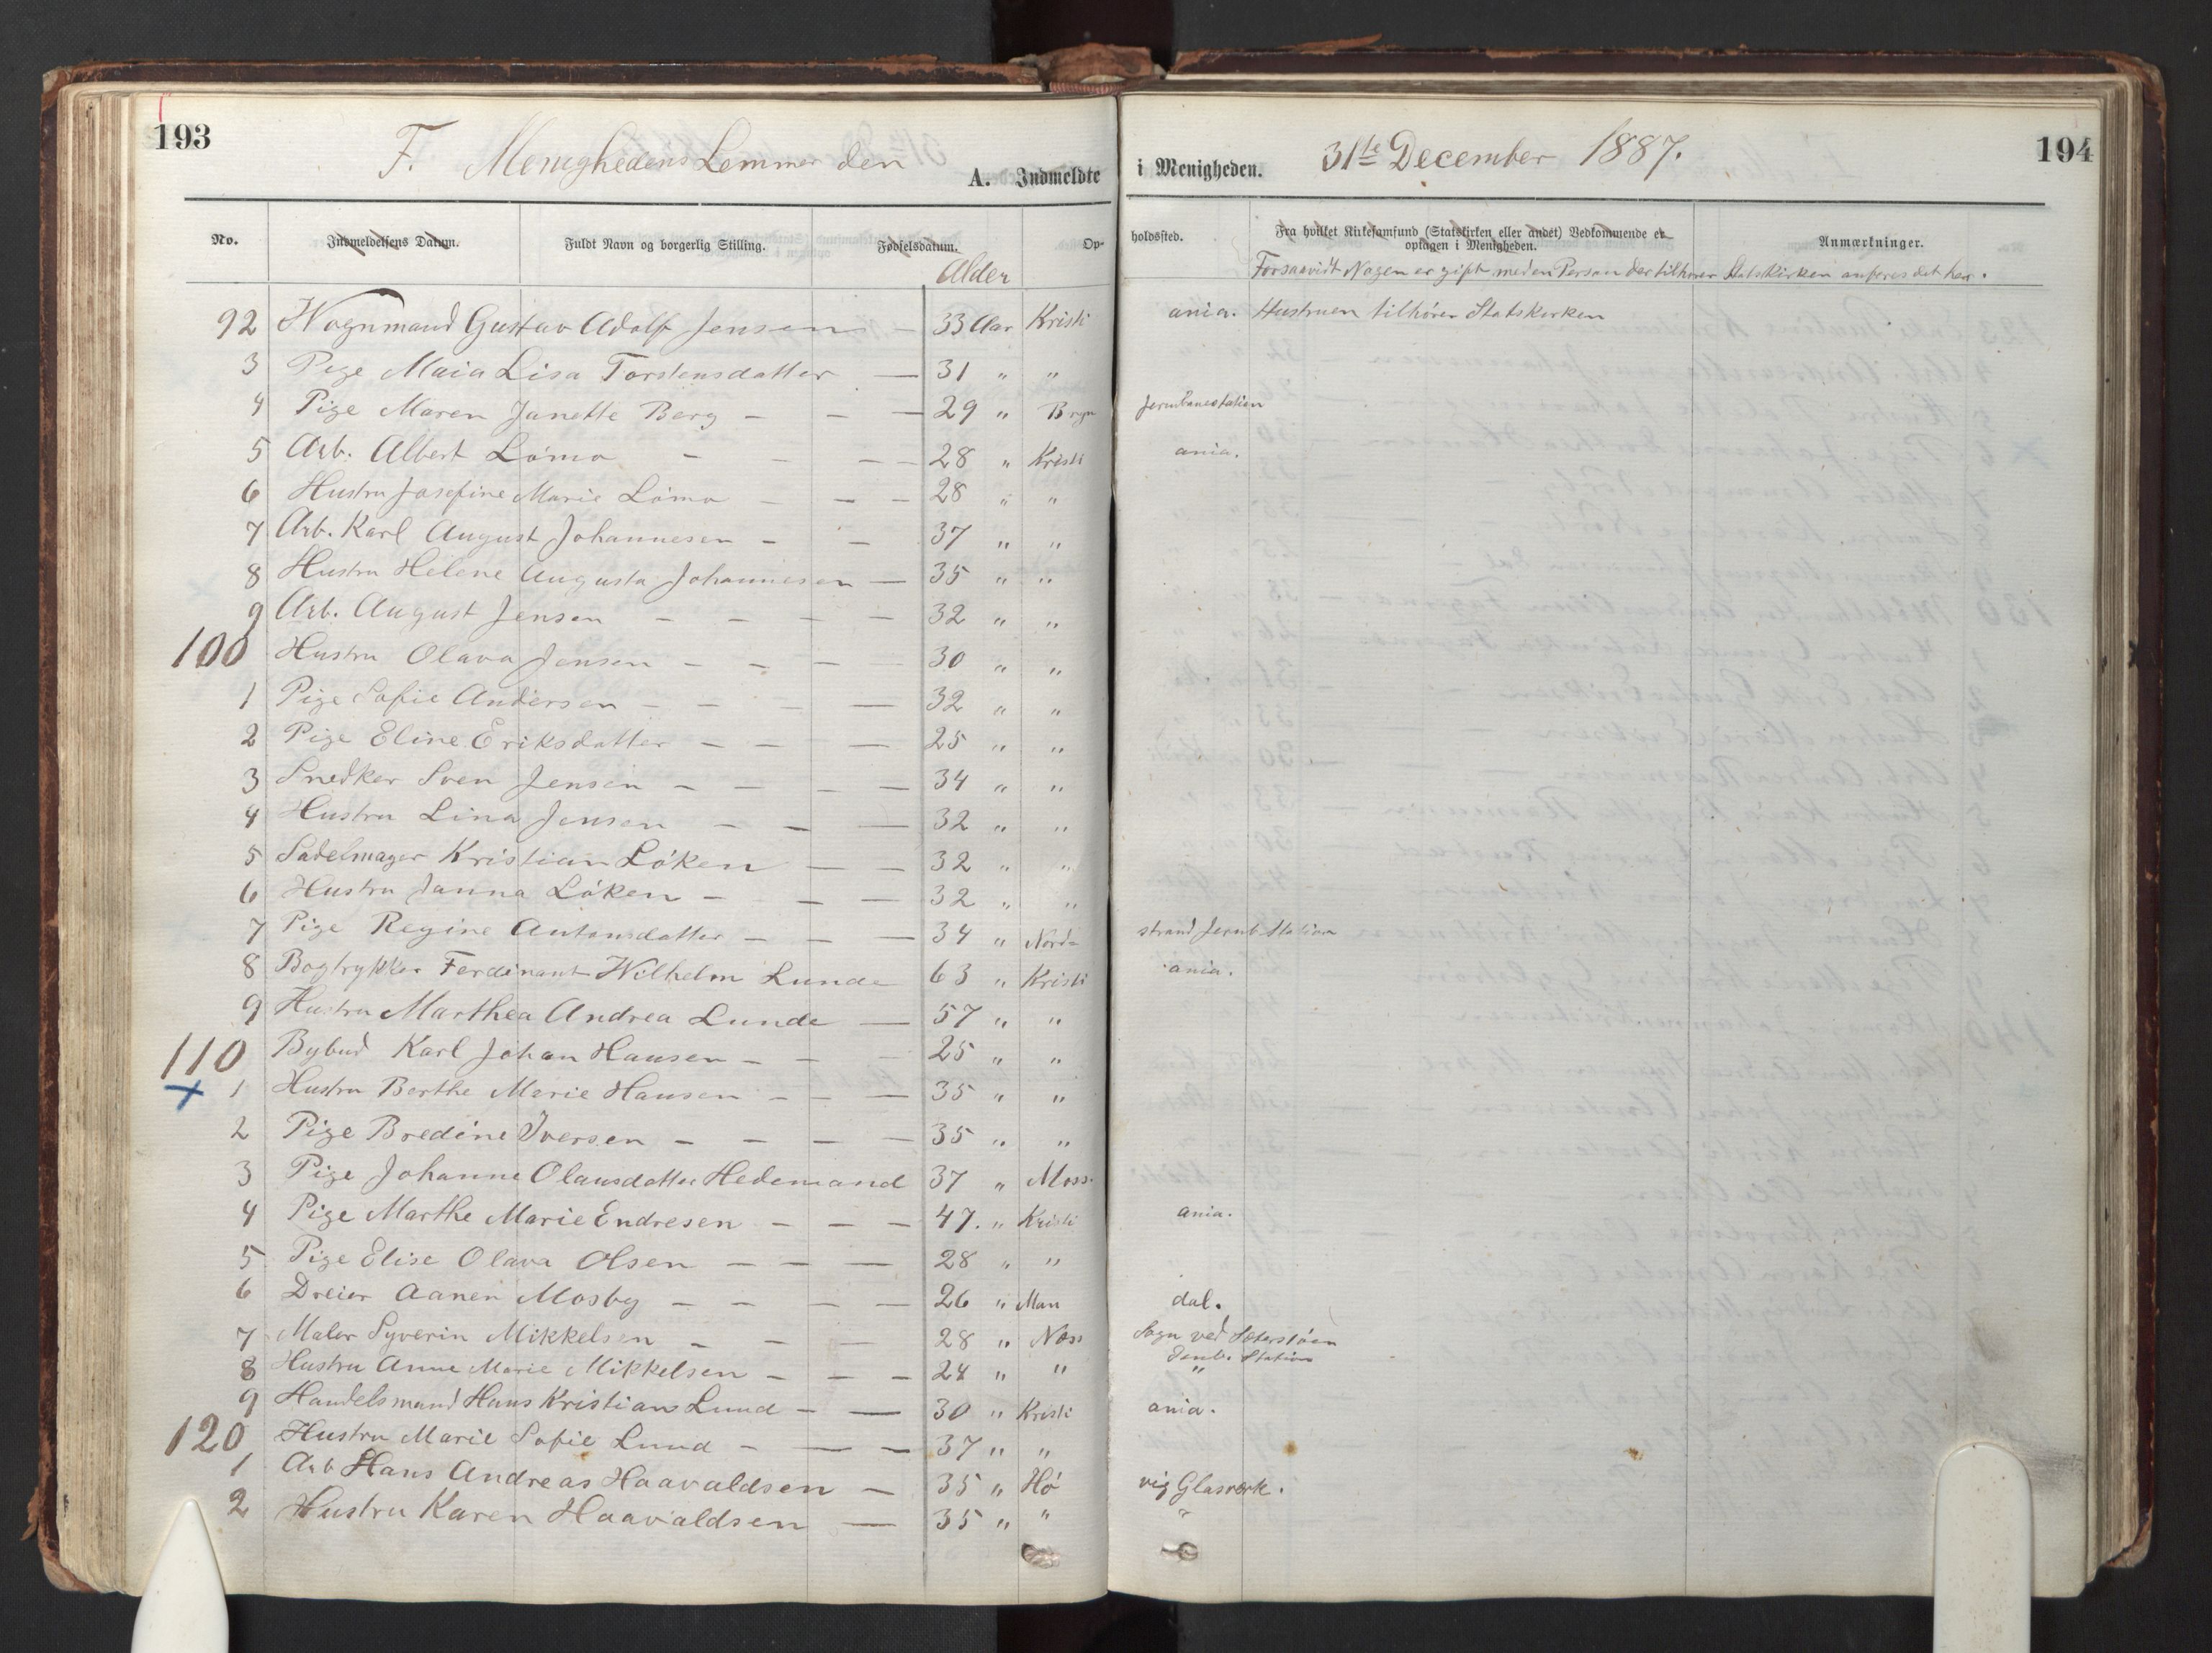 193
F. Menighedens Lemmer den 31te December 1887.
194
A. Indmeldte i Menigheden.
No. Indmeldelsens Datum. Fuldt Navn og borgerlig Stilling. Fødselsdatum. Op- holdssted. Fra hvilket Kirkesamfund (Statskirken eller andet) Vedkommende er Anmærkninger.
optagen i Menigheden.
Alder Forsaavidt Nogen er gift med en Person der tilhører Statskirken anføres det her.
92 Vognmand Gustav Adolf Jensen — 33 Aar Kristi ania. Hustruen tilhører Statskirken
3 Pige Maia Lisa Torstensdatter — 31 " "
4 Pige Maren Janette Berg — — — 29 " Bryn Jernbanestation
5 Arb. Albert Lömo — — — 28 " Kristi ania.
6 Hustru Josefine Marie Lömo — — — 28 " "
7 Arb. Karl August Johannesen — — 37 " "
8 Hustru Helene Augusta Johannesen — 35 " "
9 Arb. August Jensen — — — — 32 " "
100 Hustru Olava Jensen — — — 30 " "
1 Pige Sofie Andersen — — — — 32 " "
2 Pige Eline Eriksdatter — — — 25 " "
3 Snedker Sven Jensen — — — — 34 " "
4 Hustru Lina Jensen — — — 32 " "
5 Sadelmager Kristian Löken — — 32 " "
6 Hustru Janna Löken — — — 32 " "
7 Pige Regine Antonsdatter — — — 34 " Nord- strand Jernb. Station
8 Bogtrykker Ferdinant Wilhelm Lunde 63 " Kristi ania.
9 Hustru Marthea Andrea Lunde — 57 " "
110 Bybud Karl Johan Hansen — — — 25 " "
x 1 Hustru Berthe Marie Hansen — — — 35 " "
2 Pige Bredine Iversen — — — — 35 " "
3 Pige Johanne Olausdatter Hedemand 37 " Moss.
4 Pige Marthe Marie Endresen — — — 47. " Kristi ania.
5 Pige Elise Olava Olsen — — — 28 " "
6 Dreier Aanen Mosby — — — — 26 " Man dal.
7 Maler Syverin Mikkelsen — — — 28 " Næs Sogn ved Sæterstöen
Jernb. Station
8 Hustru Anne Marie Mikkelsen — — — 24 " " "
9 Handelsmand Hans Kristians Lund — — 30 " Kristi ania.
120 Hustru Marie Sofie Lund — — — 37 " "
1 Arb Hans Andreas Haavaldsen — 35 " Hö vig Glasværk.
2 Hustru Karen Haavaldsen — 35 " " "